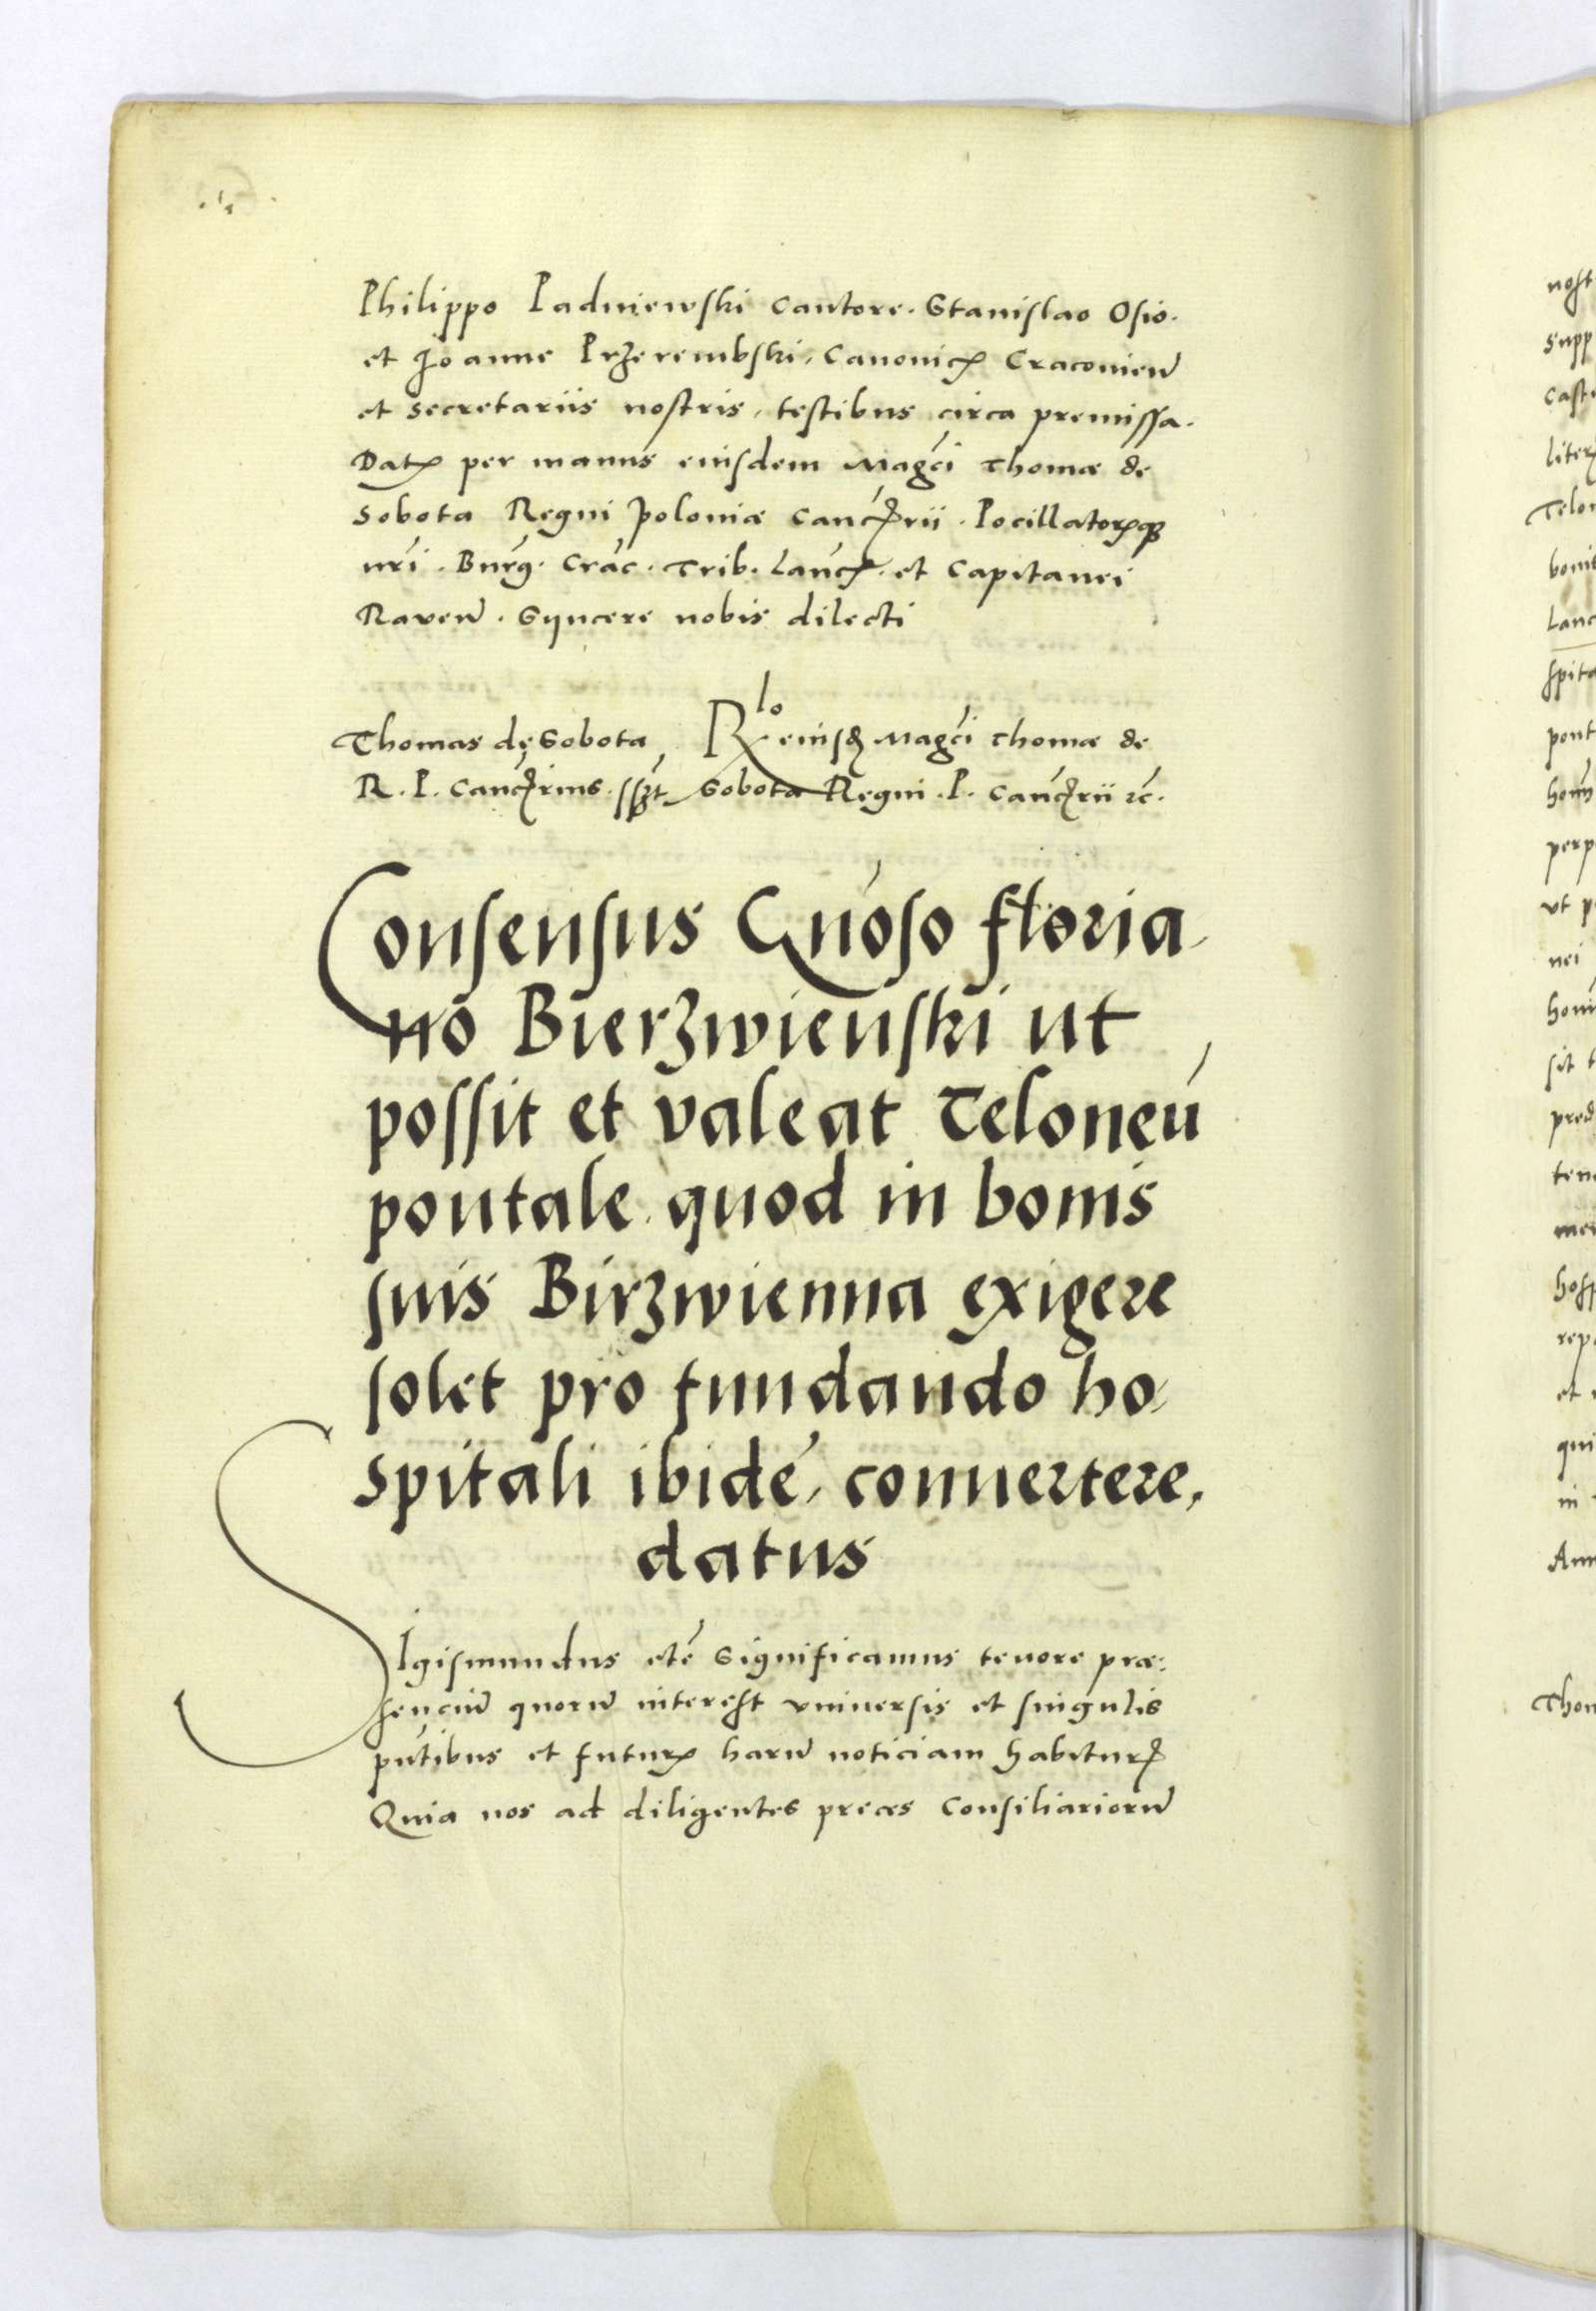 Philippo Padniewski Cantore. Stanislao Osio.
et Joanne Przerembski, Canonicꝭ Cracovieñ
et secretariis nostris, testibus circa premissa.
Datꝭ per manus eiusdem Magci Thomæ de
Sobota Regni Poloniæ Cancꝭrii. Pocillatorꝭqꝫ
nri. Burg. Crac. Trib. Lancꝭ. et Capitanei
Raveñ. Syncere nobis dilecti
Thomas de Sobota
R. P. Cancꝭrius. sszt
Rlo eiusdꝭ Magci Thomæ de
Sobota Regni. P. Cancꝭrii zc.
Consensus Gnoso Floria-
no Bierzwienski ut
possit et valeat Teloneū
pontale quod in bonis
suis Birzwienna exigere
solet pro fundando ho-
spitali ibidē, convertere,
datus
SIgismundus etc̄ Significamus tenore præ-
senciū quorū interest universis et singulis
pntibus et futurꝭ harū noticiam habiturꝭ
Quia nos ad diligentes preces Consiliariorū